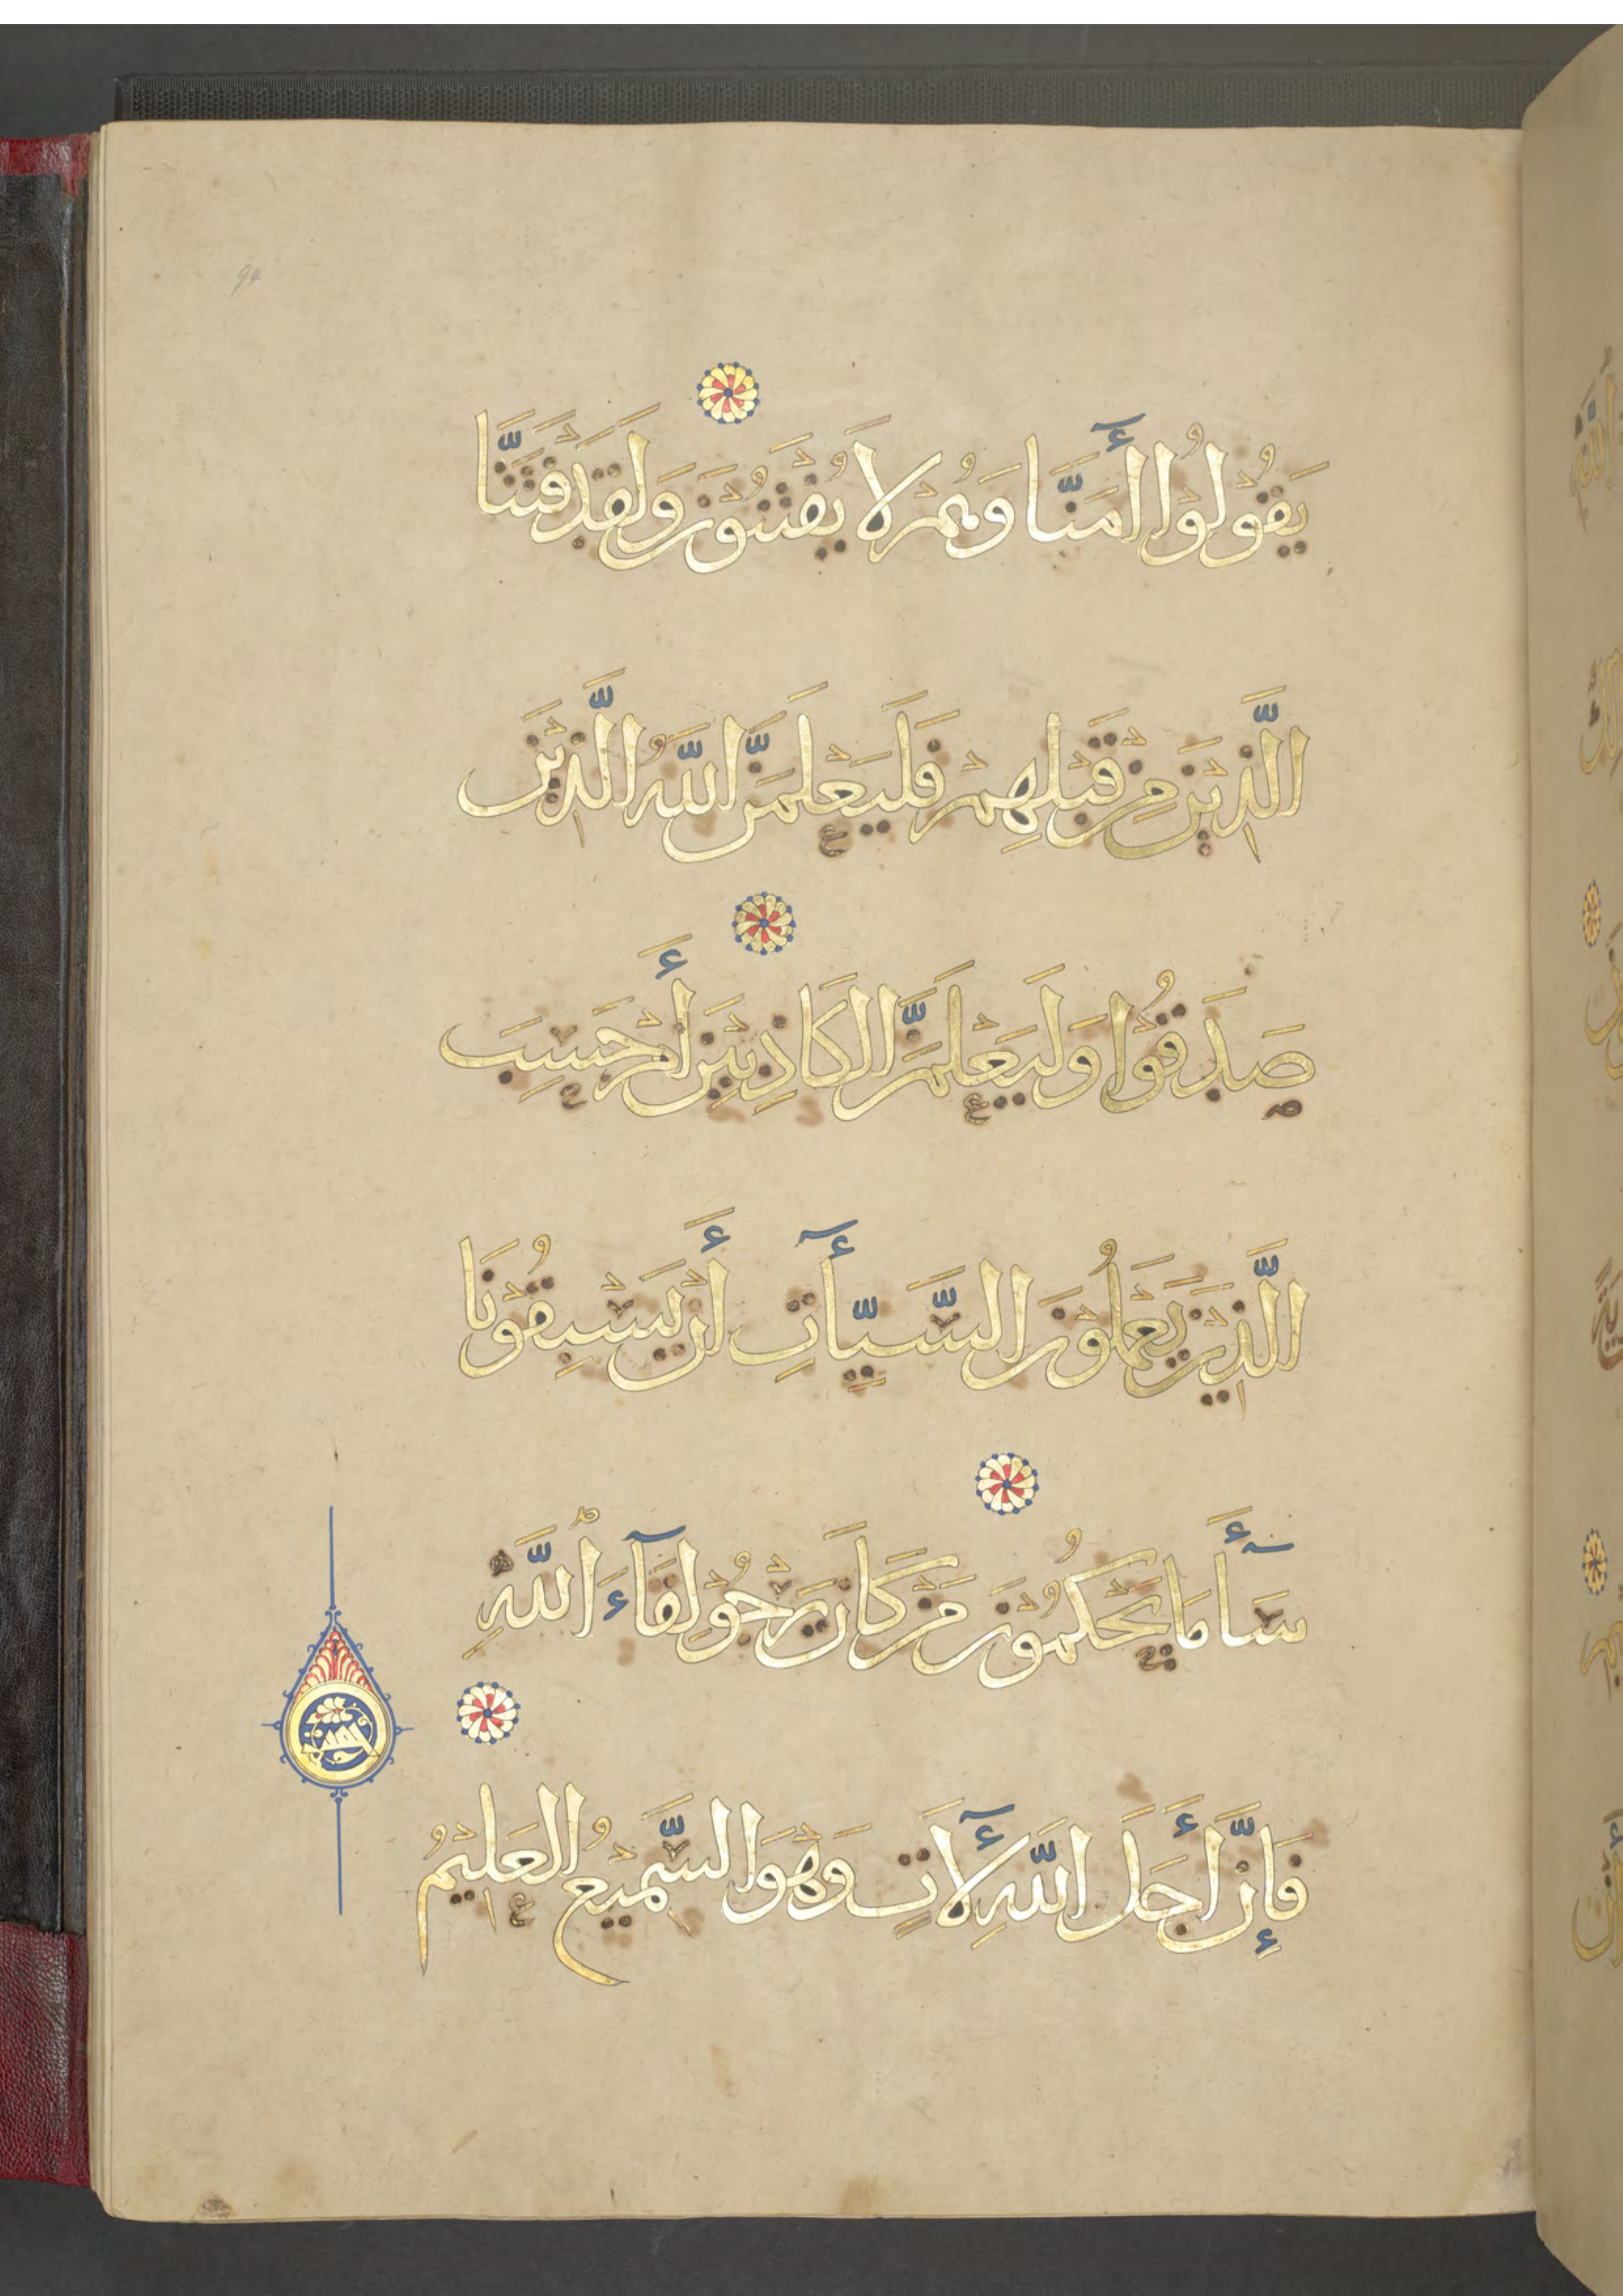 يَقُولُوا أٰمَنَّا وَهُمْ لَا يُفْتَنُونَ وَلَقَدْ فَتَنَّا
الَّذِيْنَ مِنْ قَبْلِهِمْ فَلَيَعْلَمَنَّ اللَّهُ الَّذِيْنَ
صَدَقُوْا وَلَيَعْلَمَنَّ الْكَاذِبِيْنَ أَمْ حَسِبَ
الَّذِيْنَ يَعْمَلُوْنَ السَّيِّأٰتِ أَنْ يَسْبِقُوْنَا
سَأَ مَا يَحْكُمُوْنَ مَنْ كَانَ يَرْجُوْ لِقَآءَ اللَّهِ
فَإِنَّ أَجَلَ اللَّهِ لَأٰتٍ وَهُوَ السَّمِيْعُ الْعَلِيْمُ
94